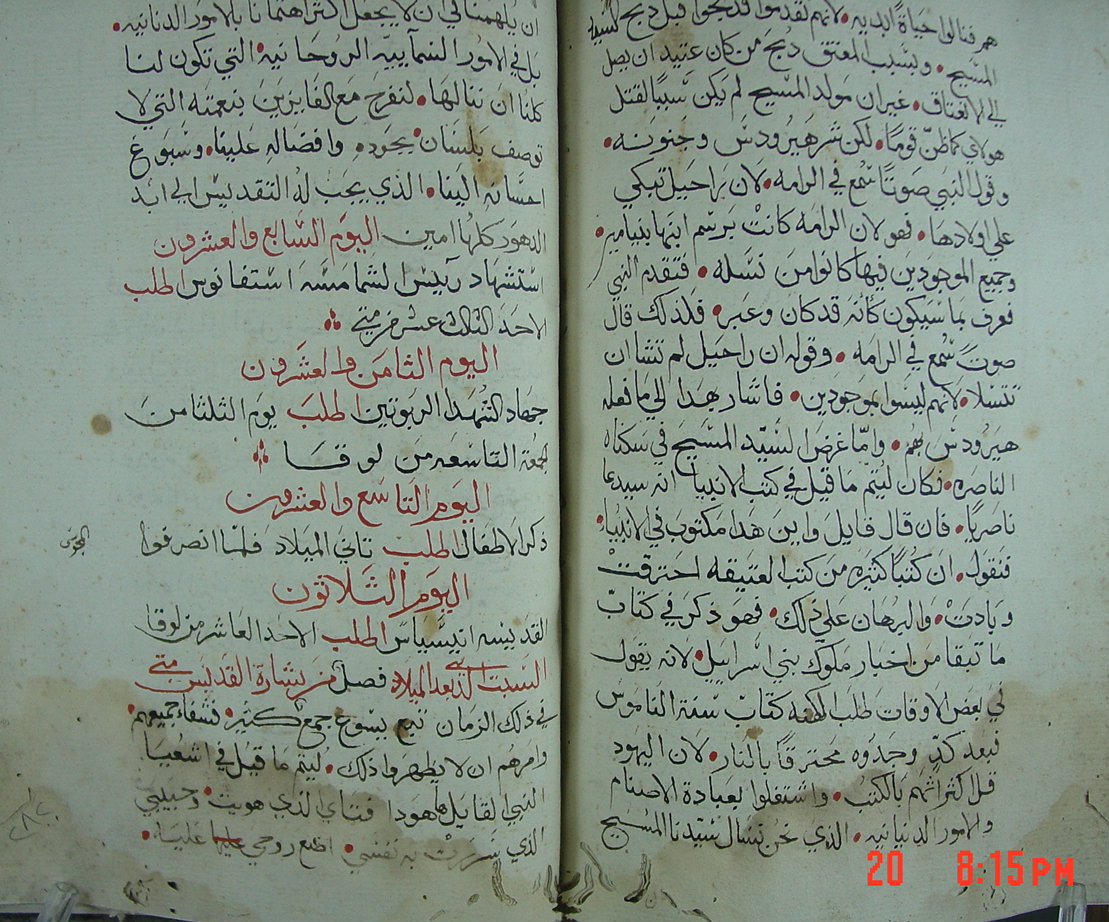 هم فنالوا حياة ابديه • لانهم تقدموا فذبحوا قبل ذبح السيد
المسيح • وبسبب المعتق ذبح من كان عتيد ان يصل
الي الانعتاق • غير ان مولد المسيح لم يكن سببا لقتل
هولاي كما ظن قوما • لكن شر هيرودس وجنونه •
وقول النبي صوتا سمع في الرامه • لان راحيل تبكي
علي اولادها • فهو لان الرامه كانت برسم ابنها بنيامين •
وجميع الموجودين فيها كانوا من نسله • فتقدم النبي
فعرف بما سيكون كانه قد كان وعبر • فلذلك قال
صوت سمع في الرامه • وقوله ان راحيل لم تشا ان
تتسلا • لانهم ليسوا بموجودين • فاشار بهذا الي ما فعله
هيرودس بهم • واما غرض السيد المسيح في سكناه
الناصره • فكان ليتم ما قيل في كتب الانبيا انه سيدعا
ناصريا • فان قال قايل واين هذا مكتوب في الانبياء •
فنقول • ان كتبا كثيره من كتب العتيقه احترقت
وبادت • والبرهان علي ذلك • فهو ذكر في كتاب
ما تبقا من اخبار ملوك بني اسراييل • لانه يقول
في بعض الاوقات طلب الكهنه كتاب سنة الناموس
فبعد كد وجدوه محترقا بالنار • لان اليهود
قل اكتراثهم بالكتب • واشتغلوا بعبادة الاصنام
والامور الدنيانيه • الذي نحن نسال سيدنا المسيح
ان يلهمنا في ان لا يجعل اكثر اهتمامنا بالامور الدنيانيه •
بل في الامور السمآييه الروحانيه • التي تكون لنا
كلنا ان ننالها • لنفرح مع الفايزين بنعمته التي لا
توصف بلسان • بجوده وافضاله علينا • وسبوغ
احسانه الينا • الذي يجب له التقديس الي ابد
الدهور كلها امين اليوم السابع والعشرون
استشهاد رييس الشمامسه استفانوس اطلب
الاحد الثالث عشر من متي
اليوم الثامن والعشرون
جهاد الشهدا الربوتين اطلب يوم الثلثا من
الجمعة التاسعه من لوقا
اليوم التاسع والعشرون
ذكر الاطفال اطلب تاني الميلاد فلما انصرفوا
المجوس
اليوم الثلاثون
القديسه انيسياس اطلب الاحد العاشر من لوقا
السبت الذي بعد الميلاد فصل من بشارة القديس متي
في ذلك الزمان تبع يسوع جمع كثير • فشفاء جميعهم •
وامرهم ان لا يظهروا ذلك • ليتم ما قيل في اشعيا
النبي القايل ها هودا فتاي الذي هويت • وحبيبي
الذي سررت به نفسي • اضع روحي عليه •
20 8:15 PM